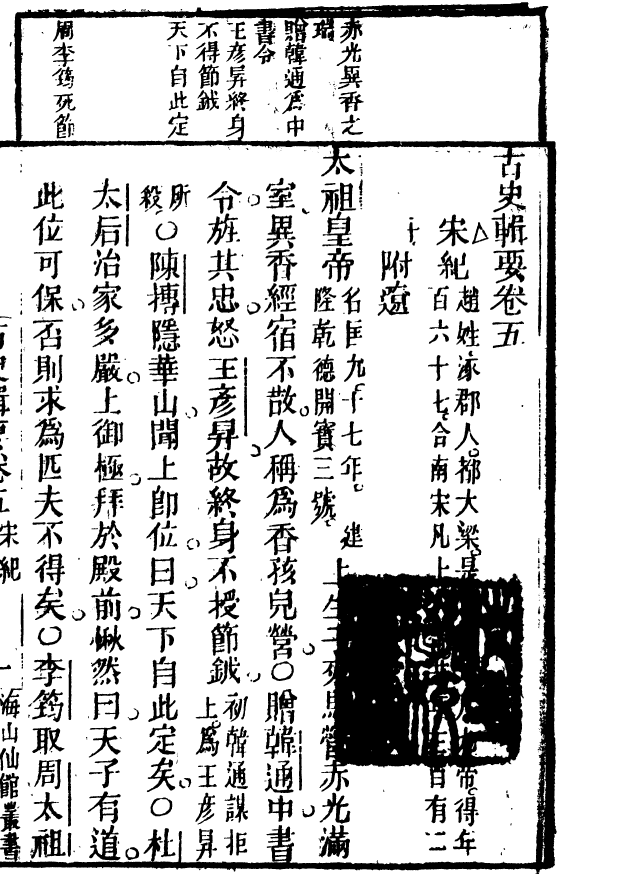 赤光異香之
瑞
贈韓通爲中
書令
王彦昇終身
不得節鉞
天下自此定
周李筠死節
古史輯要卷五
宋紀
趙姓涿郡人都大梁是
帝得年
百六十七合南宋凡上
百有二
附遼
太祖皇帝
名匡九十七年 建
隆乾德開寶三號
上生
馬營赤光滿
室異香經宿不散人稱爲香孩兒營〇贈韓通中書
令旌其忠怒王彦昇故終身不授節鉞
初韓通謀拒
上爲王彦昇
所
殺
〇陳摶隱華山聞上卽位曰天下自此定矣〇杜
太后治家多嚴上御極拜於殿前愀然曰天子有道
此位可保否則求爲匹夫不得矣〇李筠取周太祖
古史輯要卷五宋紀 一 海山仙館叢書